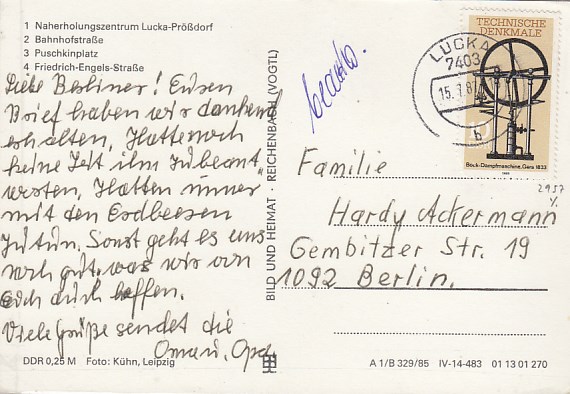 1 Naherholungszentrum Lucka-Prößdorf
2 Bahnhofstraße
3 Puschkinplatz
4 Friedrich-Engels-Straße
Liebe Berliner! Euren
Brief haben wir dankend
erhalten, Hatte noch
keine Zeit ihn zubeant
worten, Hatten immer
mit den Erdbeeren
zutun. Sonst geht es uns
noch gut, was wir von
Euch auch hoffen.
Viele Grüße sendet die
Oma u. Opa
DDR 0,25 M Foto: Kühn, Leipzig
BILD UND HEIMAT · REICHENBACH (VOGTL)
TECHNISCHE
DENKMALE
Bock-Dampfmaschine, Gera 1833
LUCKA
7403
15.7.87
b
2957
Familie
Hardy Ackermann
Gembitzer Str. 19
1092 Berlin.
A 1/B 329/85 IV-14-483 01 13 01 270